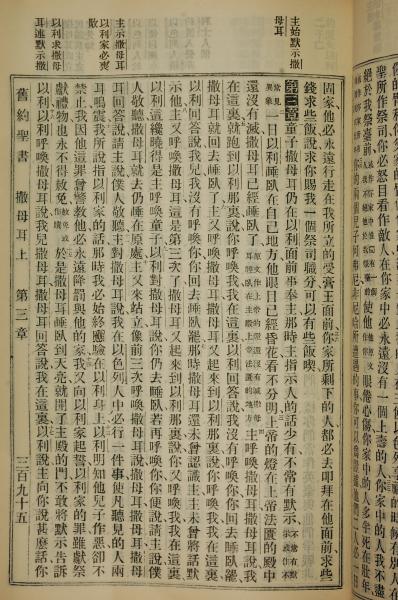 聖所作祭司你必怒目看作敵人在你家中必永遠沒有一個上壽的人你家中的人我不盡
主始默示撒
母耳
固家他必永遠行走在我所立的受膏王面前你家所剩下的人都必去叩拜在他面前求些
錢求些飯說求你賜我一個祭司職分可以有些飯喫
第三章童子撒母耳仍在以利面前事奉主那時主指示人的話少有不常有默示不常有默示或作不
常見異象一日以利睡臥在自己地方他眼目已經昏花看不分明上帝的燈在上帝法匱的殿中
還沒有滅撒母耳已經睡臥了原文作上帝的燈還沒有滅撒母耳睡臥在主殿上帝法匱的地方主呼喚撒母耳撒母耳說我
在這裏就跑到以利那裏說你呼喚我我在這裏以利回答說我沒有呼喚你你回去睡臥罷
撒母耳就回去睡臥了主又呼喚撒母耳撒母耳又起來到以利那裏說你呼喚我我在這裏
以利回答說我兒我沒有呼喚你你回去睡臥罷那時撒母耳還未曾認識主主未曾將話默
示他主又呼喚撒母耳這是第三次了撒母耳又起來到以利那裏說你又呼喚我我在這裏
主示撒母耳
以利家必
敗
以利這纔曉得是主呼喚童子以利對撒母耳說你仍去睡臥若再呼喚你你便說請主說僕
人敬聽撒母耳就去仍睡在原處主又來站立像前三次呼喚撒母耳說撒母耳撒母
耳回答說請主說僕人敬聽主對撒母耳說我在以色列人中必行一件事使凡聽見的人兩
耳鳴震我所說指以利家的話那時我必始終應驗在以利身上以利明知他兒子作惡卻不
禁止我因他這罪曾警教他必永遠降罰與他的家我又向以利家起誓以利家的罪雖獻祭
以利求撒母
耳述默示
獻禮物也永不得赦免於是撒母耳睡臥到天亮就開了主殿的門不敢將默示告訴
以利以利呼喚撒母耳說我兒撒母耳撒母耳回答說我在這裏以利說主向你說甚麼話你
舊約聖書 撒母耳上 第三章 三百九十五